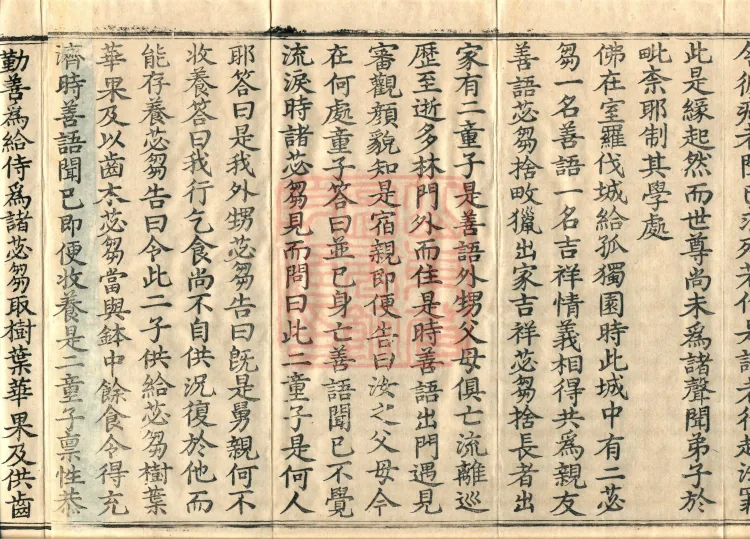 此是緣起然而世尊尚未爲諸聲聞弟子於
毗柰耶制其學處
佛在室羅伐城給孤獨園時此城中有二苾
芻一名善語一名吉祥情義相得共爲親友
善語苾芻捨畋獵出家吉祥苾芻捨長者出
家有二童子是善語外甥父母俱亡流離巡
歷至逝多林門外而住是時善語出門遇見
審觀顏貌知是宿親即便告曰汝之父母今
在何處童子答曰並已身亡善語聞已不覺
流淚時諸苾芻見而問曰此二童子是何人
耶答曰是我外甥苾芻告曰旣是舅親何不
收養答曰我行乞食尚不自供況復於他而
能存養苾芻告曰令此二子供給苾芻樹葉
華果及以齒木苾芻當與鉢中餘食令得充
濟時善語聞已即便收養是二童子稟性恭
勤善爲給侍爲諸苾芻取樹葉華果及供齒